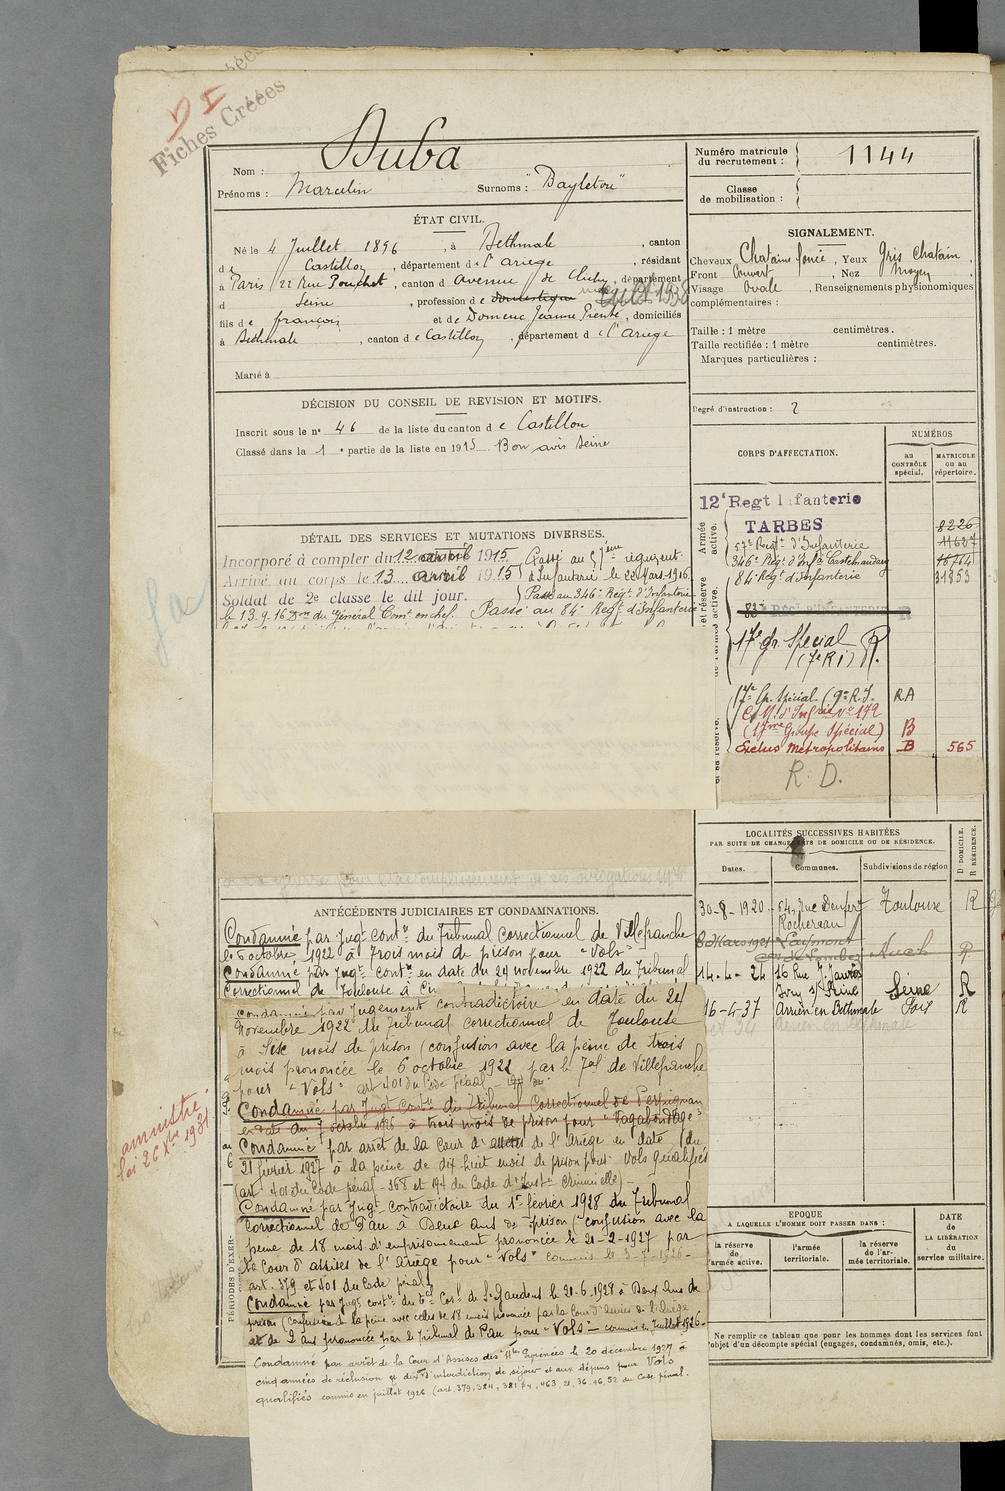 D I
Fiches Créées
Nom : Duba
Prénoms : Marcelin Surnoms : "Bayletou"
Numéro matricule
du recrutement : 1144
Classe
de mobilisation :
ÉTAT CIVIL.
Né le 4 Juillet 1896, à Bethmale, canton
de Castillon, département de l'Ariège, résidant
à Paris 22 Rue Pouchet, canton d avenue de Clichy, département
d Seine, profession de domestique
fils de françois et de Domenc Jeanne, domiciliés
à Bethmale, canton de Castillon, département de l'Ariège
Marié à
SIGNALEMENT.
Cheveux Chatains foncé, Yeux Gris Chatain,
Front Couvert, Nez moyen,
Visage Ovale, Renseignements physionomiques
complémentaires :
Taille : 1 mètre centimètres.
Taille rectifiée : 1 mètre centimètres.
Marques particulières :
Degré d'instruction : 2
DÉCISION DU CONSEIL DE REVISION ET MOTIFS.
Inscrit sous le n° 46 de la liste du canton de Castillon
Classé dans la 1e partie de la liste en 1915. Bon avis Seine
DÉTAIL DES SERVICES ET MUTATIONS DIVERSES.
Incorporé à compter du 12 avril 1915
Arrivé au corps le 13 avril 1915
Soldat de 2e classe le dit jour.
Passé au 57ème régiment
d'Infanterie le 22 Mars 1916.
Passé au 346e Régt. d'Infanterie
le 13.9.16 Don du Général Comt en chef. Passé au 84e Régt d'Infanterie
CORPS D'AFFECTATION.
NUMÉROS
au
CONTRÔLE
spécial.
MATRICULE
ou au
répertoire.
Armée
active.
12e Regt Infanterie
TARBES 8226
57e Régt d'Infanterie 11627
346e Régt d'Infie Castelnaudary 16764
84e Régt d'Infanterie
17e gr. Spécial R.
(7e R I)
17e Gp. Spécial. (9e R.I. R.A
C.M. d'Infrie N° 179
(17me Groupe Spécial) B
Exclus Métropolitains B 565
R. D.
LOCALITÉS SUCCESSIVES HABITÉES
PAR SUITE DE CHANGEMENTS DE DOMICILE OU DE RÉSIDENCE.
Dates. Communes. Subdivisions de région
D DOMICILE.
R RÉSIDENCE.
30-8-1920 54, Rue Denfert Toulouse R
Rochereau
8 Mars 1921 Auch R
14-4-24 16 Rue J. Jaurès
Ivry s/ Seine Seine R
16-4-37 Arrien en Bethmale Foix R
Arrien en Bethmale
ANTÉCÉDENTS JUDICIAIRES ET CONDAMNATIONS.
Condamné par Jugt contre du Tribunal Correctionnel de Villefranche
le 6 octobre 1922 à trois mois de prison pour "Vols"
Condamné par Jugt contre en date du 24 novembre 1922 du Tribunal
Correctionnel de Toulouse à
Condamné par Jugement contradictoire en date du 24
Novembre 1922 du Tribunal correctionnel de Toulouse
à Six mois de prison (confusion avec la peine de trois
mois prononcée le 6 octobre 1922 par le Tal de Villefranche
pour "Vols" art 401 du Code Pénal
Condamné par Jugt Contre du Tribunal Correctionnel de Perpignan
en date du 7 octobre 1926 à trois mois de prison pour "Vagabondage"
Condamné par arrêt de la Cour d'assises de l'Ariège en date du
21 février 1927 à la peine de dix huit mois de prison pour Vols qualifiés
(art. 401 du Code pénal - 368 et 194 du Code d'Inst. Criminelle)
Condamné par Jugt Contradictoire du 1er février 1928 du Tribunal
Correctionnel de Pau à Deux ans de prison (confusion avec la
peine de 18 mois d'emprisonnement prononcée le 21-2-1927 par
la Cour d'assises de l'Ariège pour "Vols"
art. 379 et 401 du Code pénal)
Condamné par Jugt contre du Tal Corl de St Gaudens le 20-6-1928 à Deux Ans de
prison (confusion de la peine avec celle de 18 mois prononcée par la Cour d'Assises de l'Ariège
et de 2 ans prononcée par le Tribunal de Pau pour "Vols" commis en Juillet 1926.
Condamné par arrêt de la Cour d'Assises des Htes Pyrénées le 20 décembre 1927 à
cinq années de réclusion et dix ans d'interdiction de séjour et aux dépens pour Vols
qualifiés commis en juillet 1926 (art. 379, 384, 381 §4, 463, 21, 36, 46, 52 du Code pénal.
amnistie
loi 26 Xbre 1931
PÉRIODES D'EXER-
EPOQUE
A LAQUELLE L'HOMME DOIT PASSER DANS :
la réserve
de
l'armée active.
l'armée
territoriale.
la réserve
de l'ar-
mée territoriale.
DATE
de
LA LIBÉRATION
du
service militaire.
Ne remplir ce tableau que pour les hommes dont les services font
l'objet d'un décompte spécial (engagés, condamnés, omis, etc.).